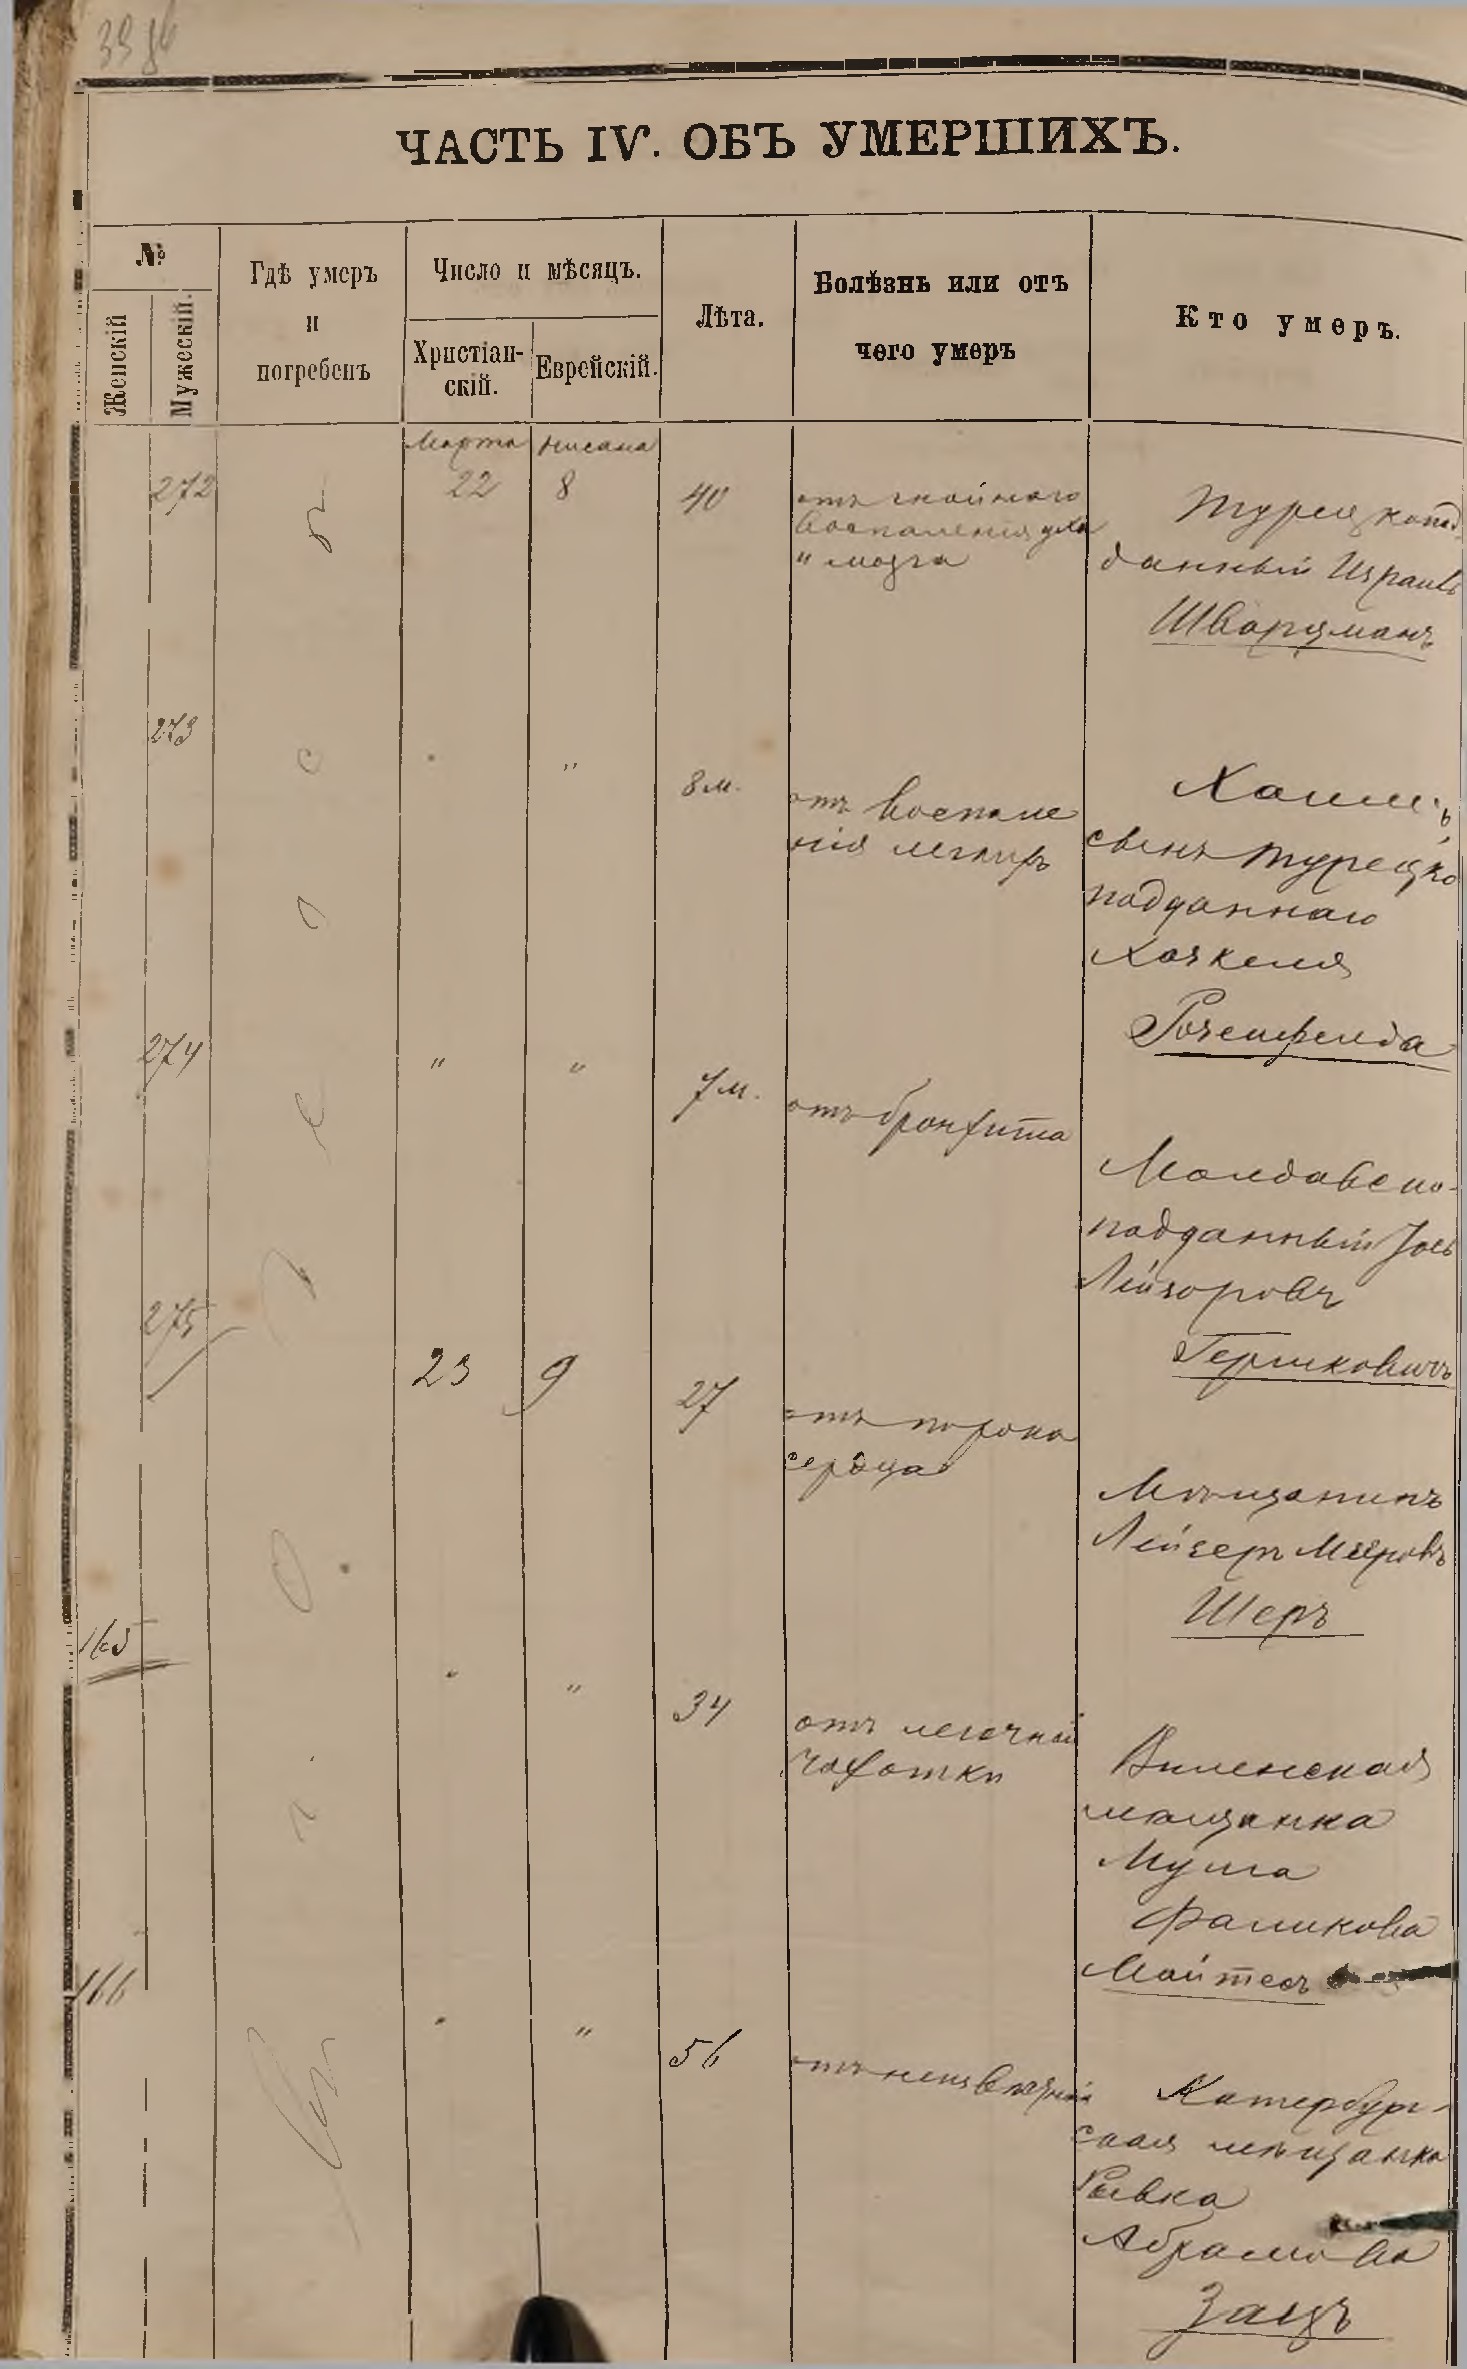 ЧАСТЬ IV. ОБЪ УМЕРШИХЪ.
№
Женскій
Мужескій.
Гдѣ умеръ
и
погребенъ
Число и мѣсяцъ.
Христіан-
скій.
Еврейскій.
Лѣта.
Болѣзнь или отъ
чего умеръ
Кто умеръ.
Марта Нисана
272 22 8 40
отъ гнойнаго
воспаленія уха
и мозга
Турецкопод-
данный Израиль
Шварцманъ
273 " 8 м.
отъ воспале
нія легкихъ
Хаимъ,
сынъ турецко
подданнаго
Хаскеля
Розенфельда
274 " " 7 м.
отъ бронхита
Молдавско-
подданный Іось
Лейзоровъ
Гершковичъ
275 23 9 27
отъ порока
сердца
Мѣщанинъ
Лейзеръ Мееровъ
Шеръ
165 " " 34
отъ легочной
чахотки
Виленская
мѣщанка
Фаликова
Майтесъ
166 " " 56
Катербург-
ская мѣщанка
Рывка
Абрамова
Зацъ
въ Одессѣ